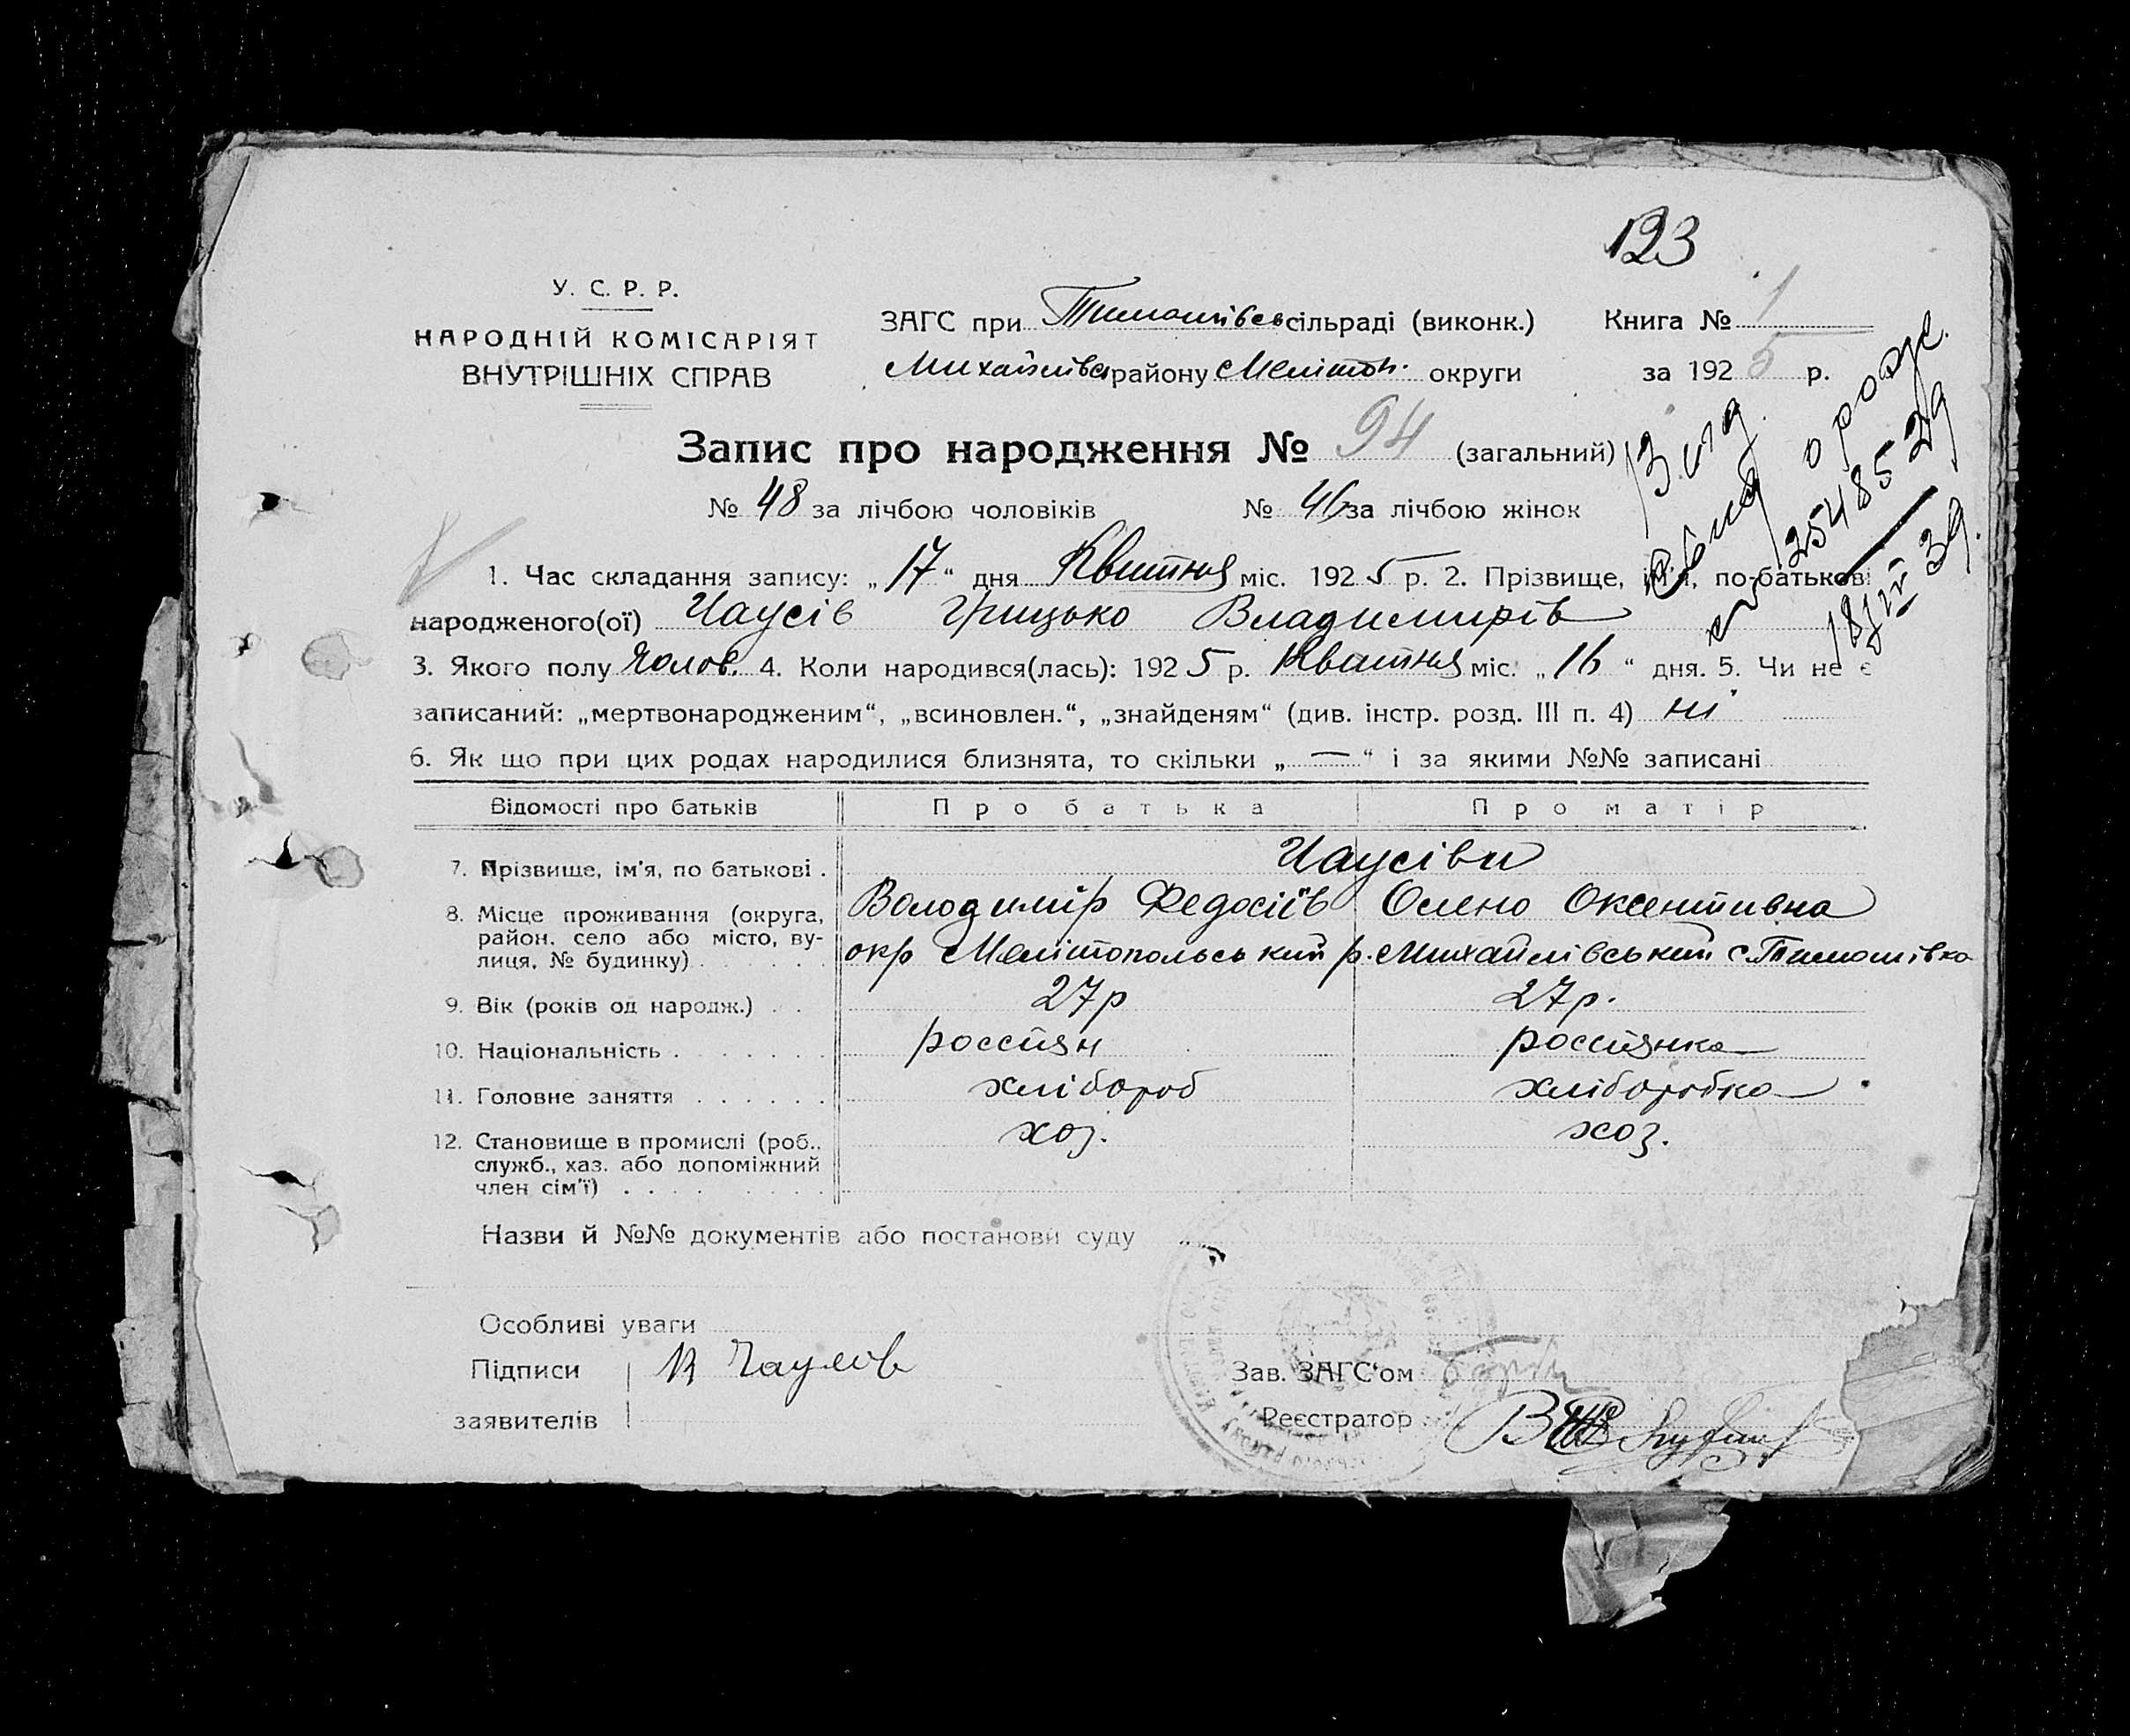 123
У. С. Р. Р.
НАРОДНІЙ КОМІСАРІЯТ
ВНУТРІШНІХ СПРАВ
ЗАГС при Тимошівсь сільраді (виконк.)
Михайлівс району Мелітоп. округи
Книга № 1
за 192 5 р.
Запис про народження № 94 (загальний)
№ 48 за лічбою чоловіків № 46 за лічбою жінок
о родж.
354852 39
39.
1. Час складання запису: „ 17 “ дня Квитня міс. 192 5 р. 2. Прізвище, ім'я, по-батькові
народженого(ої) Чаусів Грицько Владимирів
3. Якого полу Чолов. 4. Коли народився(лась): 192 5 р. Квитня міс. „ 16 “ дня. 5. Чи не є
записаний: „мертвонародженим“, „всиновлен.“, „знайденям“ (див. інстр. розд. III п. 4) ні
6. Як що при цих родах народилися близнята, то скільки „ — “ і за якими №№ записані
Відомості про батьків Про батька Про матір
7. Прізвище, ім'я, по батькові . Чаусіви
Володимір Федосіїв Олено Оксентивна
8. Місце проживання (округа,
район. село або місто, ву-
лиця, № будинку) окр Мелітопольський р. Михайлівський с. Тимошівка
9. Вік (років од народж.) 27р 27р.
10. Національність россиян россиянка
11. Головне заняття хлібороб хліборобка
12. Становище в промислі (роб., хоз. хоз.
служб., хаз. або допоміжний
член сім'ї)
Назви й №№ документів або постанови суду
Особливі уваги
Підписи В Чаусов
заявителів
Зав. ЗАГС'ом
Реєстратор